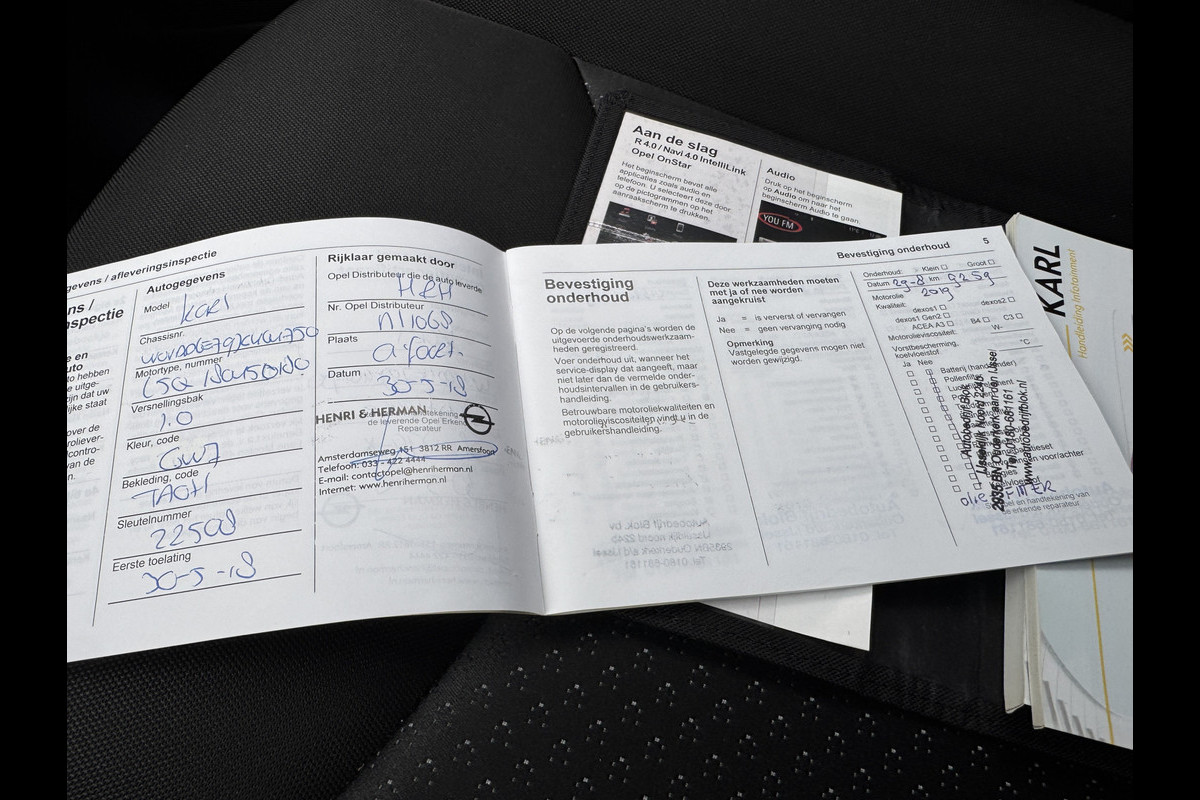 Aan de slag
R 4.0 / Navi 4.0 IntelliLink
Opel OnStar
Het beginscherm bevat alle
applicaties zoals audio en
telefoon. U selecteert deze door
op de pictogrammen op het
aanraakscherm te drukken.
Audio
Druk op het beginscherm
op Audio om naar het
beginscherm Audio te gaan.
YOU FM
KARL
Handleiding Infotainment
gevens / afleveringsinspectie
ns /
nspectie
e en
to hebben
e uitge-
zijn dat uw
ijke staat
over de
roliever-
contro-
van de
n.
Autogegevens
Model Karl
Chassisnr.
Motortype, nummer
Versnellingsbak
1.0
Kleur, code
GW7
Bekleding, code
TAOH
Sleutelnummer
22508
Eerste toelating
30-5-18
Rijklaar gemaakt door
Opel Distributeur die de auto leverde
H&H
Nr. Opel Distributeur
nl1068
Plaats
a'foort.
Datum
30-5-18
HENRI & HERMAN
de leverende Opel Erkend
Reparateur
Amsterdamseweg 151 3812 RR Amersfoort
Telefoon: 033 - 422 4444
E-mail: contactopel@henriherman.nl
Internet: www.henriherman.nl
Bevestiging onderhoud 5
Bevestiging
onderhoud
Op de volgende pagina's worden de
uitgevoerde onderhoudswerkzaam-
heden geregistreerd.
Voer onderhoud uit, wanneer het
service-display dat aangeeft, maar
niet later dan de vermelde onder-
houdsintervallen in de gebruikers-
handleiding.
Betrouwbare motoroliekwaliteiten en
motorolieviscositeiten vindt u in de
gebruikershandleiding.
Deze werkzaamheden moeten
met ja of nee worden
aangekruist
Ja = is ververst of vervangen
Nee = geen vervanging nodig
Opmerking
Vastgelegde gegevens mogen niet
worden gewijzigd.
Onderhoud: Klein Groot
Datum 29-8 km 9259
Motorolie 2019
Kwaliteit:
dexos1 dexos2
dexos1 Gen2
ACEA A3 B4 C3
Motorolieviscositeit: W-
Vorstbescherming,
koelvloeistof °C
Ja Nee
Pollenfilter
Autobedrijf Blok
IJsseldijk Noord 224b
2935 BN Ouderkerk aan den IJssel
Tel. 0180-681161
www.autobedrijfblok.nl
olie FILTER
Stempel en handtekening van
de erkende reparateur